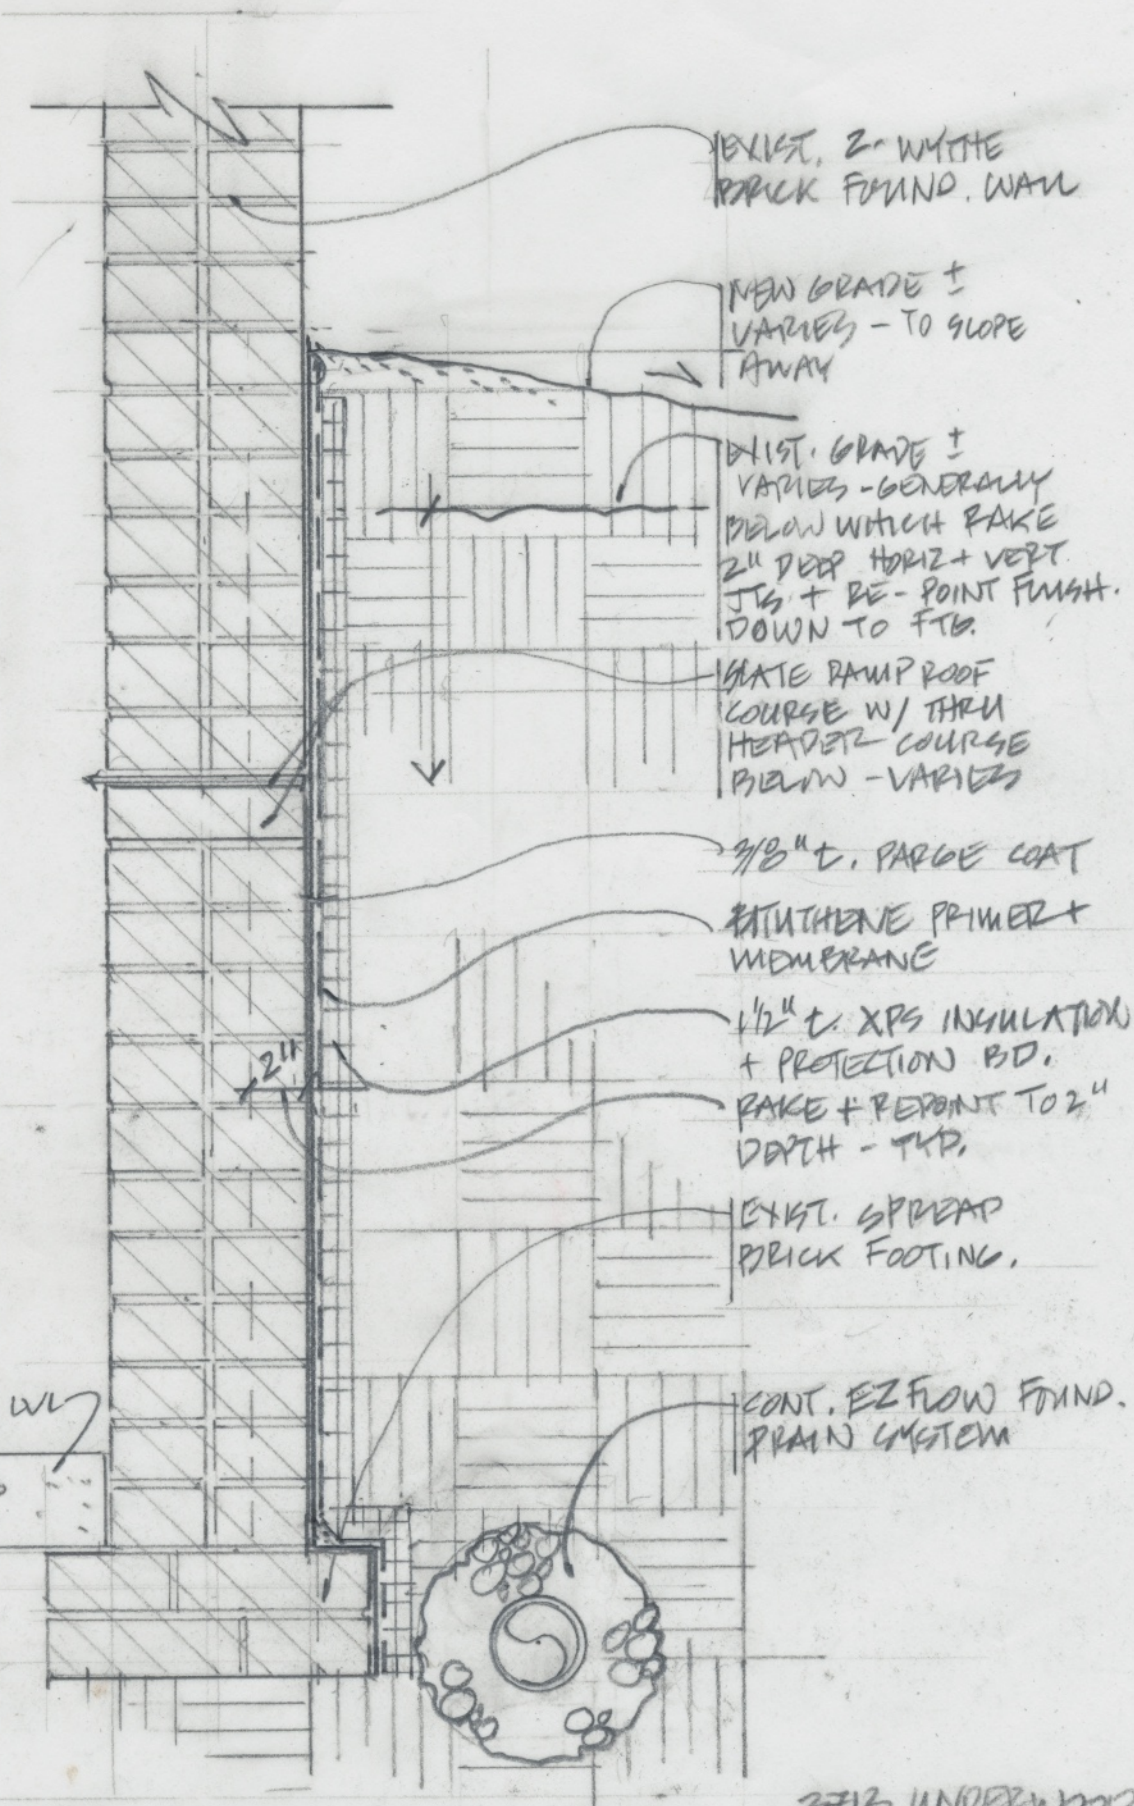 EXIST. 2-WYTHE
BRICK FOUND. WALL
NEW GRADE ±
VARIES - TO SLOPE
AWAY
EXIST. GRADE ±
VARIES - GENERALLY
BELOW WHICH RAKE
2" DEEP HORIZ + VERT
JTS + RE-POINT FLUSH.
DOWN TO FTG.
SLATE DAMPROOF
COURSE W/ THRU
HEADER COURSE
BELOW - VARIES
3/8" t. PARGE COAT
BITUTHENE PRIMER +
MEMBRANE
1 1/2" t. XPS INSULATION
+ PROTECTION BD.
2"
RAKE + REPOINT TO 2"
DEPTH - TYP.
EXIST. SPREAD
BRICK FOOTING.
CONT. EZFLOW FOUND.
DRAIN SYSTEM